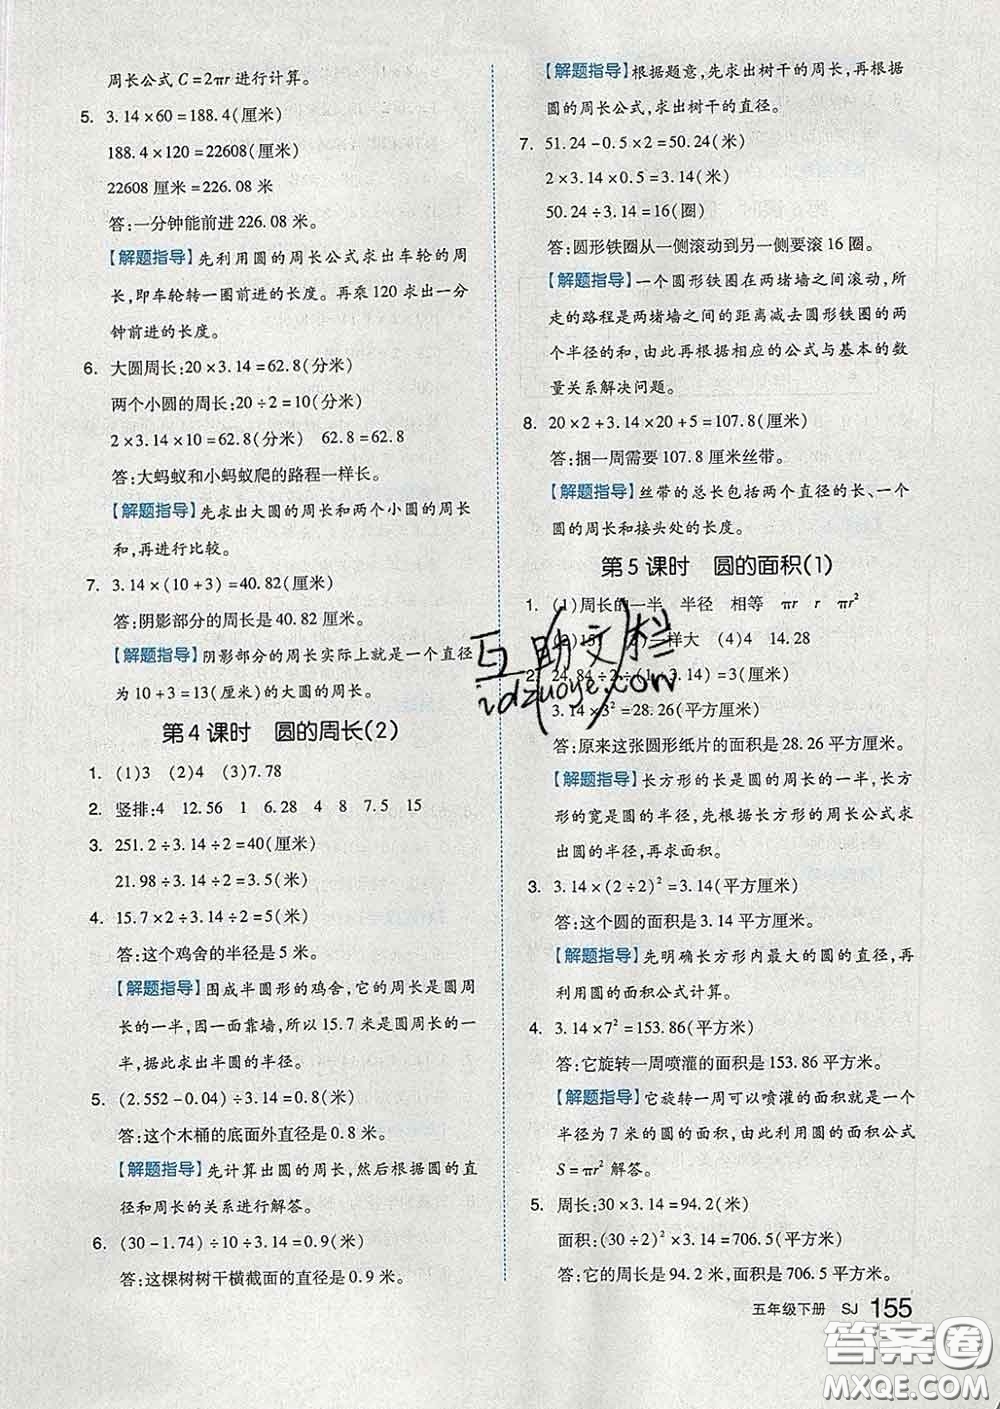 周长公式 C=2πr 进行计算。
5. 3.14×60=188.4(厘米)
188.4×120=22608(厘米)
22608 厘米=226.08 米。
答:一分钟能前进 226.08 米。
【解题指导】先利用圆的周长公式求出车轮的周
长,即车轮转一圈前进的长度。再乘 120 求出一分
钟前进的长度。
6. 大圆周长:20×3.14=62.8(分米)
两个小圆的周长:20÷2=10(分米)
2×3.14×10=62.8(分米) 62.8=62.8
答:大蚂蚁和小蚂蚁爬的路程一样长。
【解题指导】先求出大圆的周长和两个小圆的周长
和,再进行比较。
7. 3.14×(10+3)=40.82(厘米)
答:阴影部分的周长是 40.82 厘米。
【解题指导】阴影部分的周长实际上就是一个直径
为 10+3=13(厘米)的大圆的周长。
第 4 课时 圆的周长(2)
1. (1)3 (2)4 (3)7.78
2. 竖排:4 12.56 1 6.28 4 8 7.5 15
3. 251.2÷3.14÷2=40(厘米)
21.98÷3.14÷2=3.5(米)
4. 15.7×2÷3.14÷2=5(米)
答:这个鸡舍的半径是 5 米。
【解题指导】围成半圆形的鸡舍,它的周长是圆周
长的一半,因一面靠墙,所以 15.7 米是圆周长的一
半,据此求出半圆的半径。
5. (2.552-0.04)÷3.14=0.8(米)
答:这个木桶的底面外直径是 0.8 米。
【解题指导】先计算出圆的周长,然后根据圆的直
径和周长的关系进行解答。
6. (30-1.74)÷10÷3.14=0.9(米)
答:这棵树树干横截面的直径是 0.9 米。
【解题指导】根据题意,先求出树干的周长,再根据
圆的周长公式,求出树干的直径。
7. 51.24-0.5×2=50.24(米)
2×3.14×0.5=3.14(米)
50.24÷3.14=16(圈)
答:圆形铁圈从一侧滚动到另一侧要滚 16 圈。
【解题指导】一个圆形铁圈在两堵墙之间滚动,所
走的路程是两堵墙之间的距离减去圆形铁圈的两
个半径的和,由此再根据相应的公式与基本的数
量关系解决问题。
8. 20×2+3.14×20+5=107.8(厘米)
答:捆一周需要 107.8 厘米丝带。
【解题指导】丝带的总长包括两个直径的长、一个
圆的周长和接头处的长度。
第 5 课时 圆的面积(1)
1. (1)周长的一半 半径 相等 πr r πr²
一样大 (4)4 14.28
2. 24.84÷2÷(1+3.14)=3(厘米)
3.14×3²=28.26(平方厘米)
答:原来这张圆形纸片的面积是 28.26 平方厘米。
【解题指导】长方形的长是圆的周长的一半,长方
形的宽是圆的半径,先根据长方形的周长公式求
出圆的半径,再求面积。
3. 3.14×(2÷2)²=3.14(平方厘米)
答:这个圆的面积是 3.14 平方厘米。
【解题指导】先明确长方形内最大的圆的直径,再
利用圆的面积公式计算。
4. 3.14×7²=153.86(平方米)
答:它旋转一周喷灌的面积是 153.86 平方米。
【解题指导】它旋转一周可以喷灌的面积就是一个
半径为 7 米的圆的面积,由此利用圆的面积公式
S=πr² 解答。
5. 周长:30×3.14=94.2(米)
面积:(30÷2)²×3.14=706.5(平方米)
答:它的周长是 94.2 米,面积是 706.5 平方米。
五年级下册 SJ 155
互助文档
idzuoye.com
答案圈
MXQE.COM